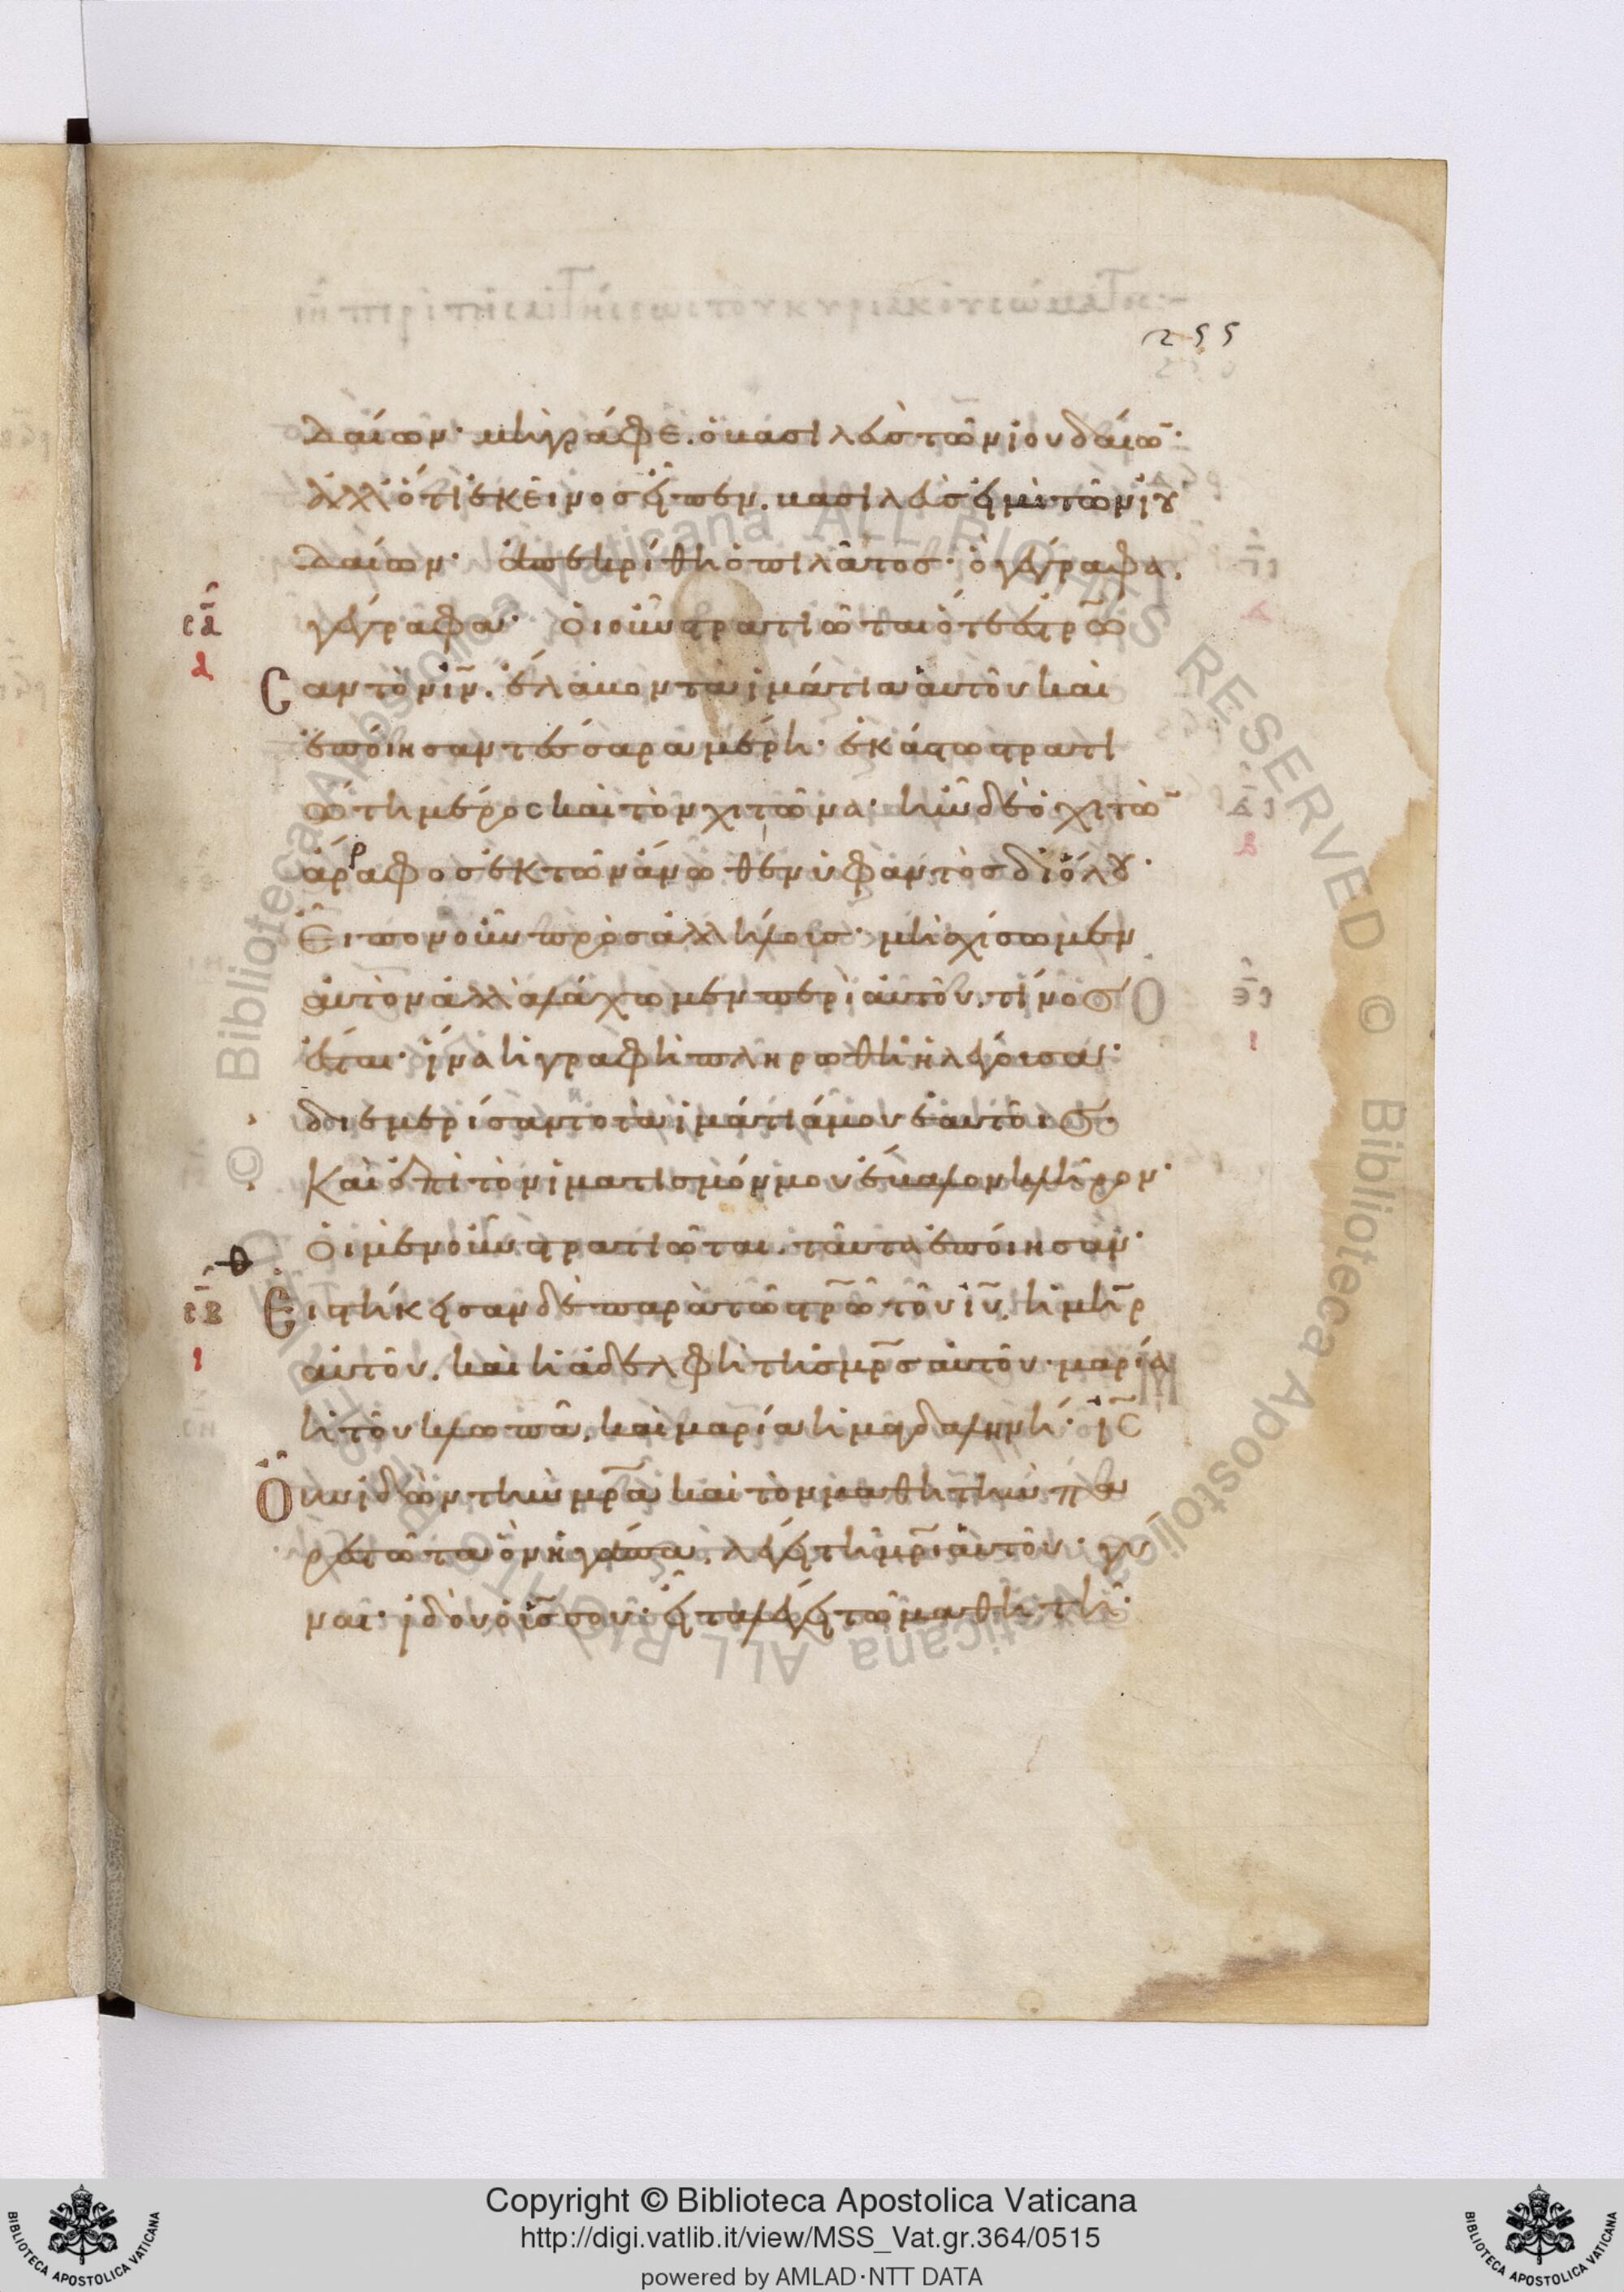 ιη περὶ τῆς αἰτήσεως τοῦ κυριακοῦ σώματος:-
255
δαίων· μὴ γράφε. ὁ βασιλεὺς τῶν ἰουδαίω̅·
ἀλλ' ὅτι ἐκεῖνος εἶπεν. βασιλεύς εἰμι τῶν ἰου
δαίων· ἀπεκρίθη ὁ πιλᾶτος· ὃ γέγραφα.
γέγραφα· οἱ οὖν στρατιῶται ὅτε ἐστ̅ρω
σα
α
σαν τὸν ι̅ν̅. ἔλαβον τὰ ἱμάτια αὐτοῦ καὶ
ἐποίησαν τέσσαρα μέρη· ἑκάστω στρατι
ώτη μέρος καὶ τὸν χιτῶνα· ἦν δὲ ὁ χιτὼ̅
ἄρραφος ἐκ τῶν ἄνωθεν ὑφαντὸς δι' ὅλου·
Εἶπον οὖν πρὸς ἀλλήλους· μὴ σχίσωμεν
αὐτὸν ἀλλὰ λάχωμεν περὶ αὐτοῦ. τίνος
ἔσται· ἵνα ἡ γραφὴ πληρωθῆ ἡ λέγουσα·
διεμερίσαντο τὰ ἱμάτιά μου ἑαυτοῖς·
Καὶ ἐπὶ τὸν ἱματισμόν μου ἔβαλον κλῆρον·
οἱ μὲν οὖν στρατιῶται. ταῦτα ἐποίησαν·
σβ
ι
Εἱστήκεισαν δὲ παρὰ τῶ στ̅ρῶ τοῦ ι̅υ̅. ἡ μη̅ρ
αὐτοῦ. καὶ ἡ ἀδελφὴ τῆς μ̅ρ̅ς αὐτοῦ· μαρία
ἡ τοῦ κλωπᾶ. καὶ μαρία ἡ μαγδαληνή· ι̅ς̅
Οὖν ἰδὼν τὴν μ̅ρ̅α καὶ τὸν μαθητὴν πα
ρεστῶτα ὃν ἠγάπα. λέγει τῆ μ̅ρ̅ι αὐτοῦ· γύ
ναι· ἰδοὺ ὁ υ̅ς̅ σου· εἶτα λέγει τῶ μαθητῆ·
© Biblioteca Apostolica Vaticana ALL RIGHTS RESERVED
Copyright © Biblioteca Apostolica Vaticana
http://digi.vatlib.it/view/MSS_Vat.gr.364/0515
powered by AMLAD·NTT DATA
BIBLIOTECA APOSTOLICA VATICANA
BIBLIOTECA APOSTOLICA VATICANA